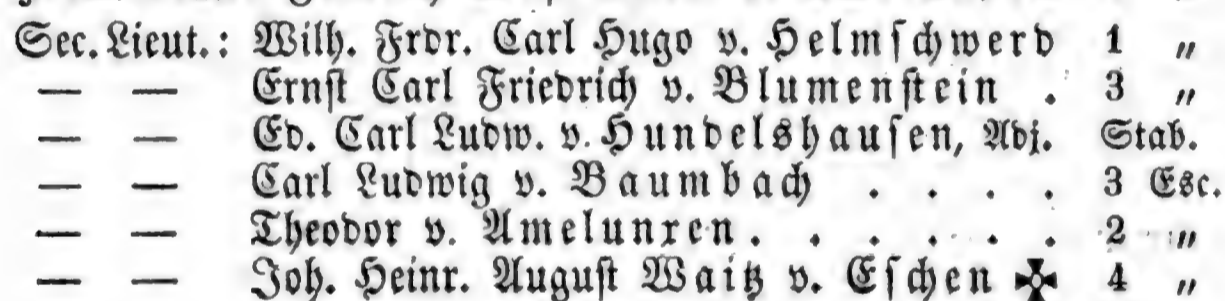 Sec. Lieut.: Wilh. Frdr. Carl Hugo v. Helmschwerd 1 "
— — Ernst Carl Friedrich v. Blumenstein . 3 "
— — Ed. Carl Ludw. v. Hundelshausen, Adj. Stab.
— — Carl Ludwig v. Baumbach . . . . 3 Esc.
— — Theodor v. Amelunxen . . . . . . 2 "
— — Joh. Heinr. August Waitz v. Eschen ✠ 4 "